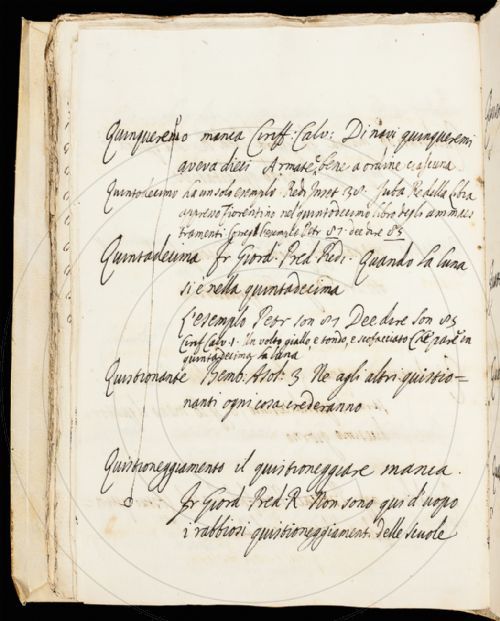 Quinqueremo manca Ciriff: Calv: Di navi quinqueremi
aveva dieci Armate, bene a ordine ciascuna
Quintodecimo ha un solo esempio. Redi Inset 38. Juba Re della Libia
appresso Fiorentino nel quintodecimo libro degli ammaes
tramenti l'esempio Petr 81. dee dire 83
Quintadecima Fr Giord. Pred Redi. Quando la luna
si è nella quintadecima
L'esempio Petr son 81 Dee dire son 83
Cirif Calv. 1. Un volto giallo, e tondo, e stofacciato Che pare in
quintadecima la luna
Quistionante Bemb. Asol. 3 Ne agli altri quistio=
nanti ogni cosa crederanno
Quistioneggiamento il quistioneggiare manca.
Fr Giord Pred R Non sono qui d'uopo
i rabbiosi quistioneggiament. delle scuole